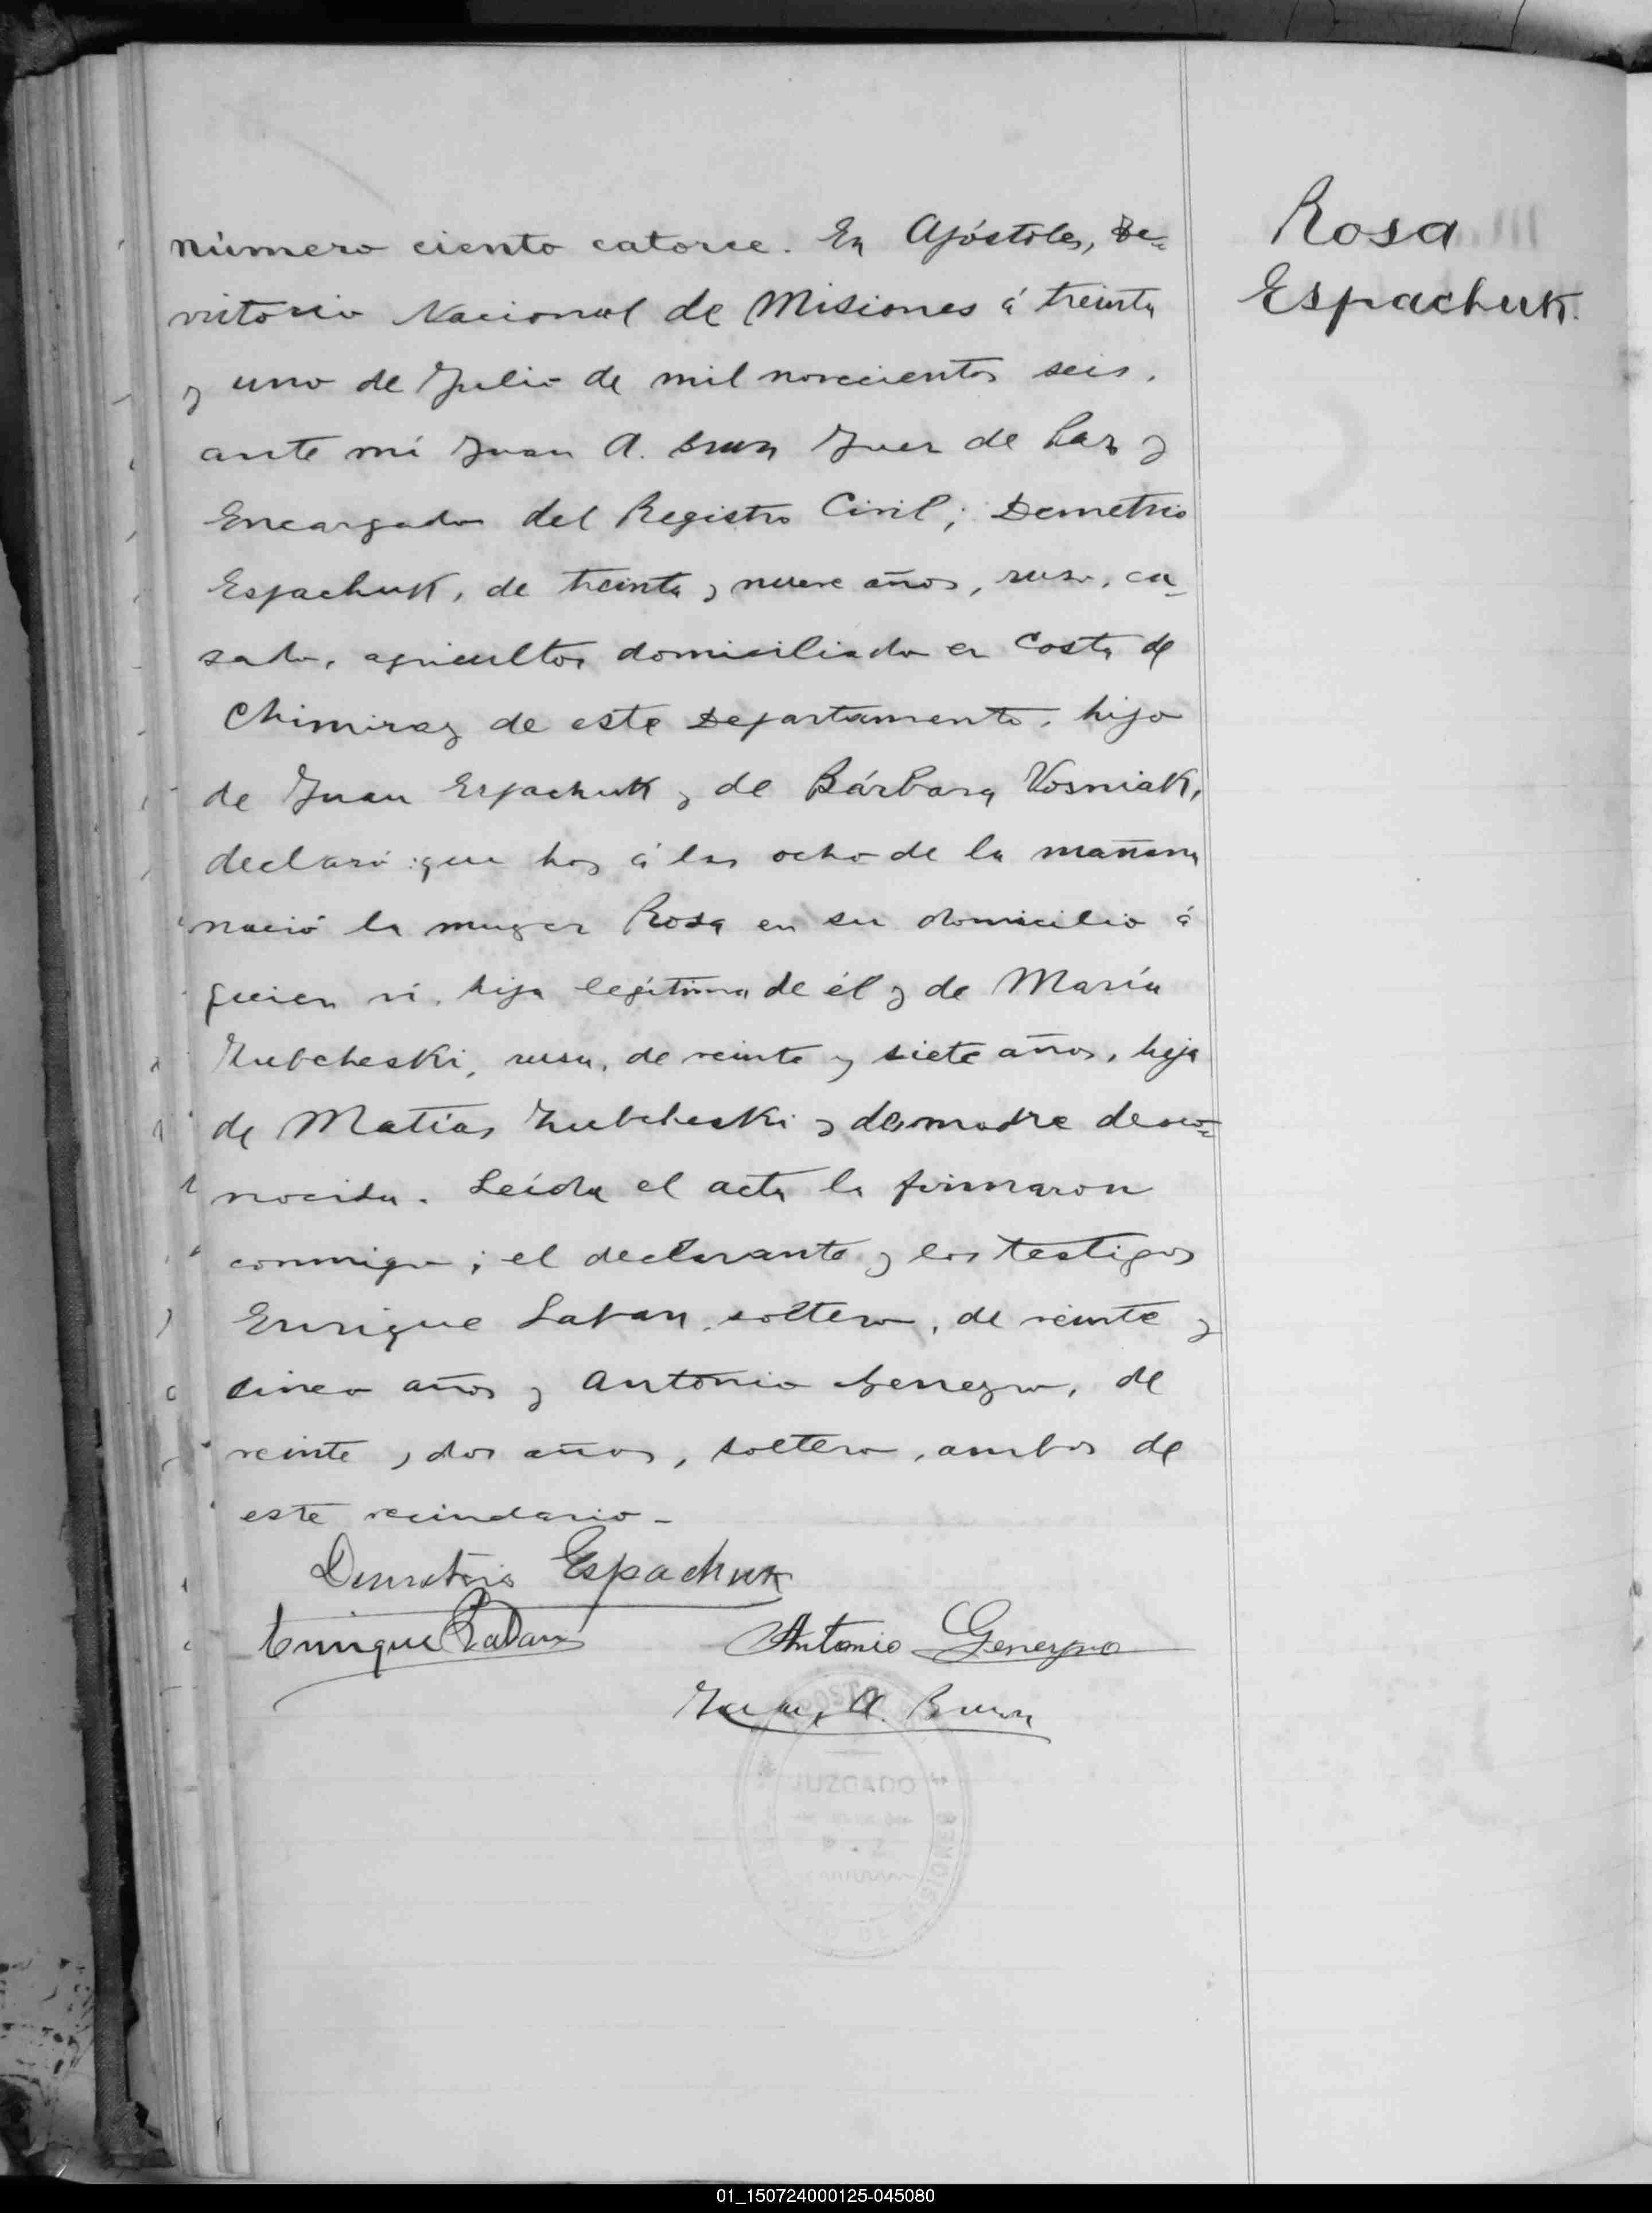 Rosa
Espachuk.
número ciento catorce. En Apóstoles, Te-
rritorio Nacional de Misiones á treinta
y uno de Julio de mil novecientos seis,
ante mí Juan A. Brun Juez de Paz y
Encargado del Registro Civil; Demetrio
Espachuk, de treinta y nueve años, ruso, ca-
sado, agricultor domiciliado en Costa de
Chimiray de este Departamento, hijo
de Juan Espachuk y de Bárbara Vosniak,
declaró: que hoy á las ocho de la mañana
nació la muger Rosa en su domicilio á
quien ví, hija legítima de él y de María
Zubcheski, rusa, de veinte y siete años, hija
de Matías Zubcheski y de madre desco-
nocida. Leída el acta la firmaron
conmigo; el declarante y los testigos
Enrique Laban, soltero, de veinte y
cinco años y Antonio Genegro, de
veinte y dos años, soltero, ambos de
este vecindario -
Demetrio Espachuk
Enrique Laban Antonio Genegro
Juan A. Brun
JUZGADO
01_150724000125-045080